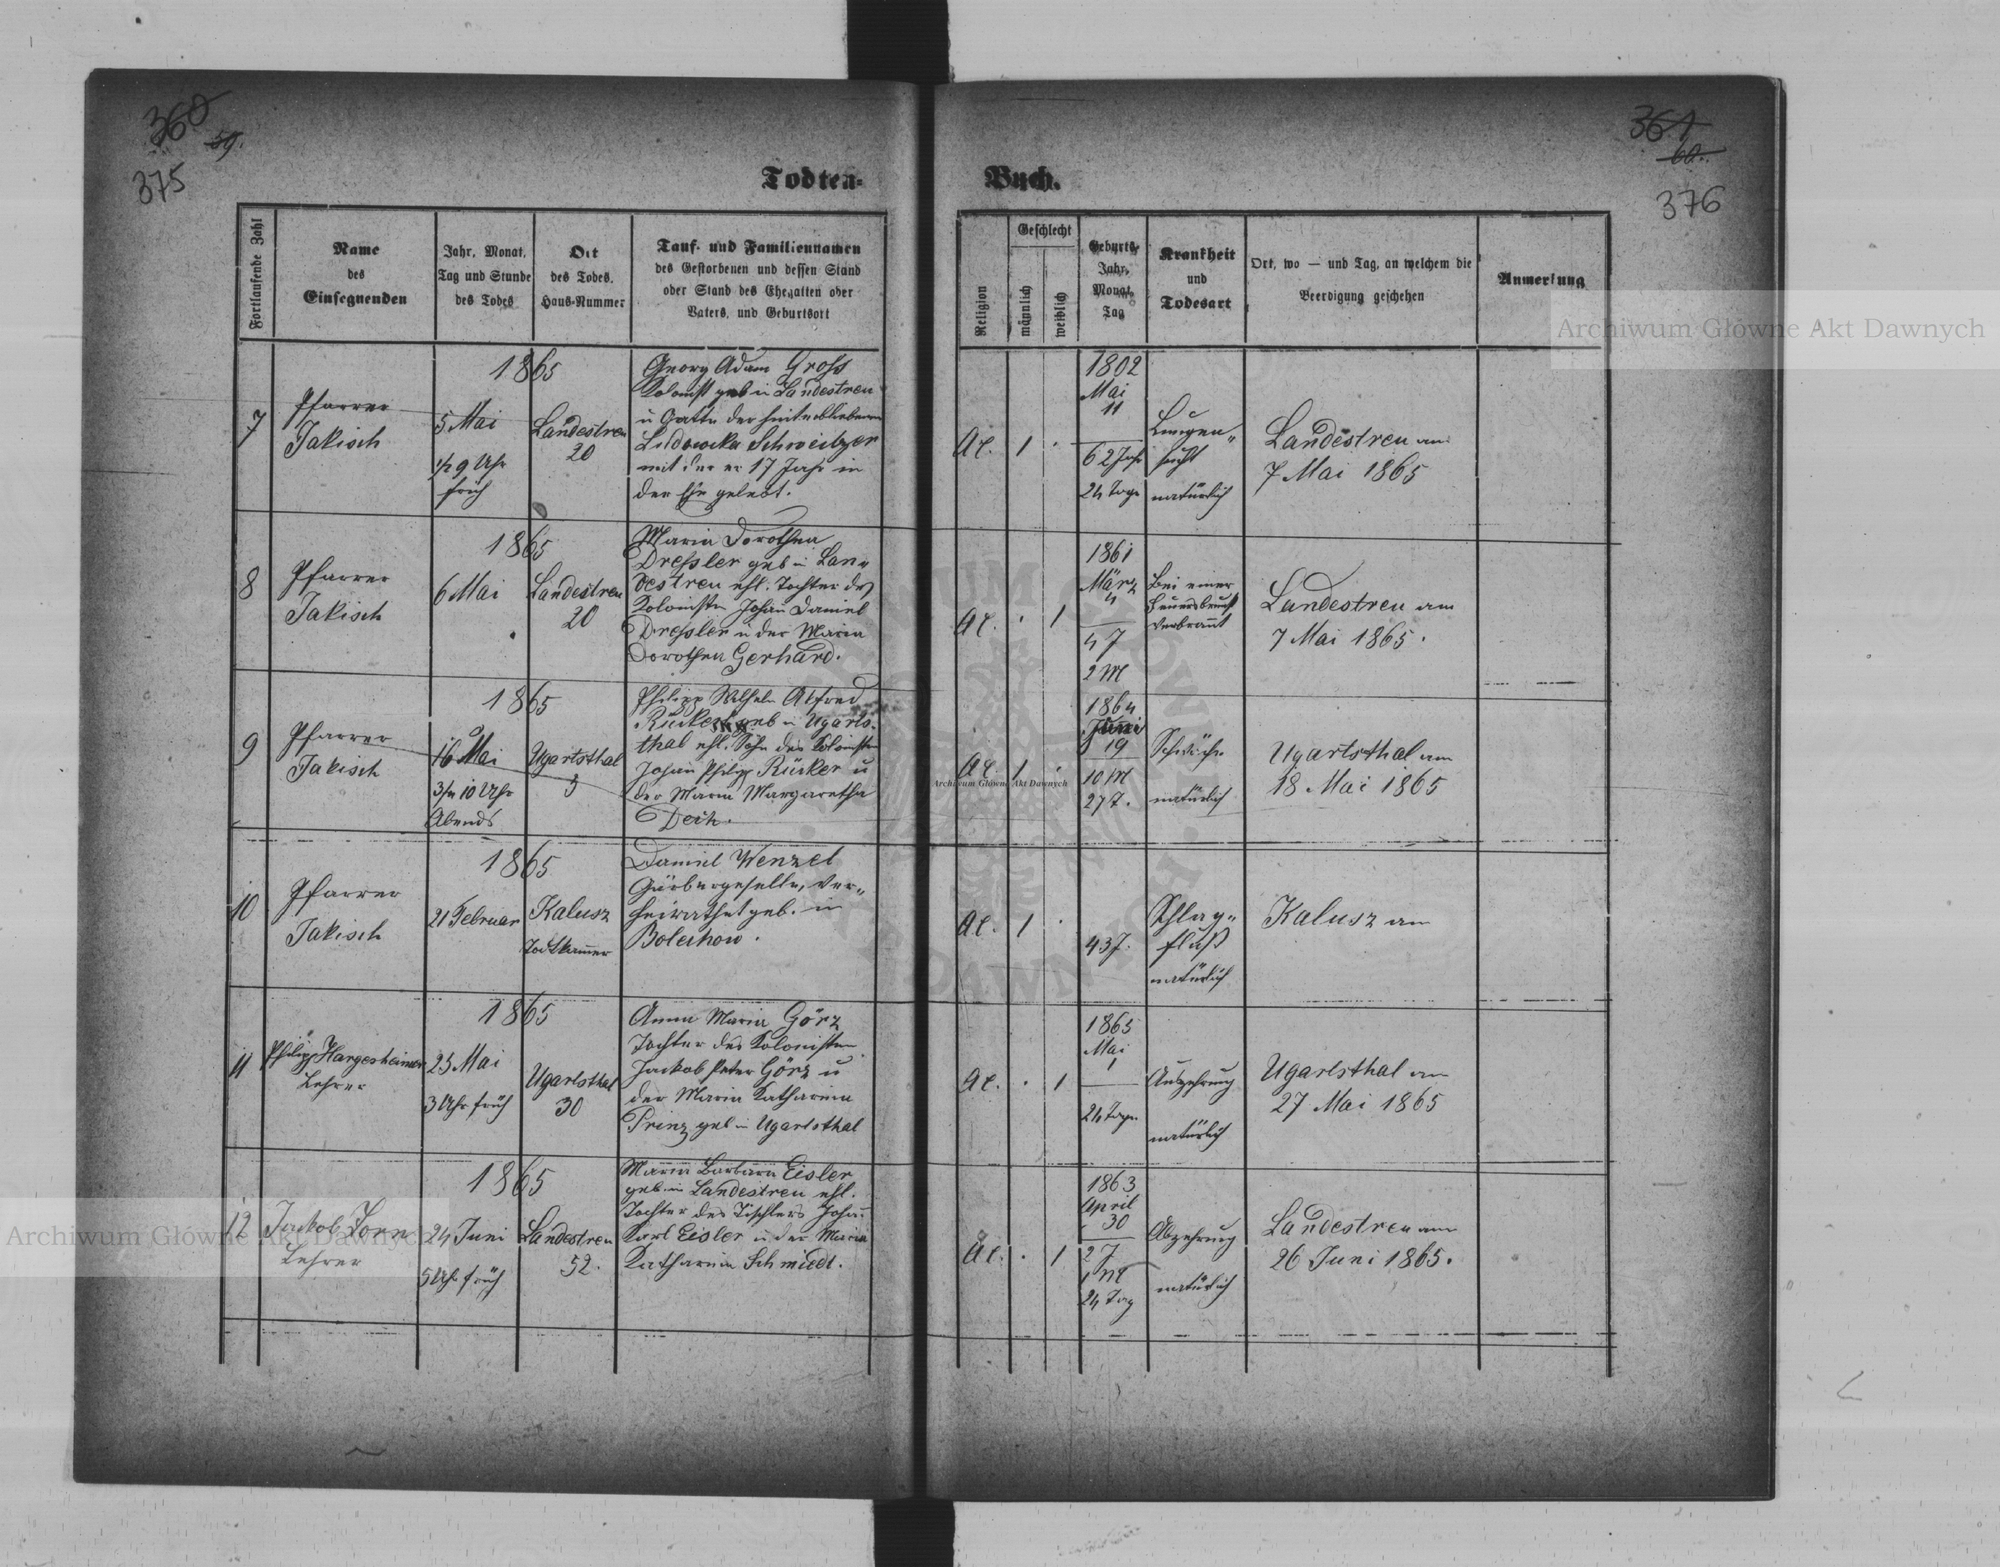 360
59.
375
Todten-
Fortlaufende Zahl
Name
des
Einsegnenden
Jahr, Monat,
Tag und Stunde
des Todes
Ort
des Todes,
Haus-Nummer
Tauf- und Familiennamen
des Gestorbenen und dessen Stand
oder Stand des Ehegatten oder
Vaters, und Geburtsort
7
Pfarrer
Jakisch
1865
5 Mai
1/2 9 Uhr
früh
Landestreu
20
Georg Adam Groß
Kolonist geb in Landestreu
u Gatte der hinterbliebenen
Ludowika Schweitzer
mit der er 17 Jahr in
der Ehe gelebt.
8
Pfarrer
Jakisch
1865
6 Mai
Landestreu
20
Maria Dorothea
Dreßler geb in Lan„
destreu ehl. Tochter des
Kolonisten Johan̄ Daniel
Dreßler u der Maria
Dorothea Gerhard.
9
Pfarrer
Jakisch
1865
16 Mai
3/4 10 Uhr
Abends
Ugartsthal
5
Philipp Wilhelm Alfred
Rücker geb in Ugarts-
thal ehl. Sohn des Kolonisten
Johan̄ Philipp Rücker u
der Maria Margaretha
Dech.
10
Pfarrer
Jakisch
1865
21 Februar
Kalusz
Todtkam̄er
Daniel Wenzel
Gärbergeselle, ver„
heirathet geb. in
Bolechow.
11
Philipp Hargesheimer
Lehrer
1865
25 Mai
3 Uhr früh
Ugartsthal
30
Anna Maria Görz
Tochter des Kolonisten
Jackob Peter Görz u
der Maria Katharina
Prinz geb in Ugartsthal
12
Jackob Zorn
Lehrer
1865
24 Juni
5 Uhr früh
Landestreu
52.
Maria Barbara Eisler
geb. in Landestreu ehl.
Tochter des Tischlers Johan̄
Karl Eisler u der Maria
Katharina Schmiedt.
361
60.
376
Buch.
Religion
Geschlecht
männlich
weiblich
Geburts-
Jahr,
Monat,
Tag
Krankheit
und
Todesart
Ort, wo — und Tag, an welchem die
Beerdigung geschehen
Anmerkung
AC.
1
1802
Mai
11
62 Jahr
24 Tage
Lungen„
sucht
natürlich
Landestreu am
7 Mai 1865
AC.
1
1861
März
4
4 J
2 M
Bei einer
Feuersbrunst
verbrannt
Landestreu am
7 Mai 1865.
AC.
1
1864
Juni
19
10 M
27 T.
Schwäche
natürlich
Ugartsthal am
18 Mai 1865
AC.
1
43 J.
Schlag„
fluß
natürlich
Kalusz am
AC.
1
1865
Mai
1
24 Tage
Auszehrung
natürlich
Ugartsthal am
27 Mai 1865
AC.
1
1863
April
30
2 J
1 M
24 Tag
Abzehrung
natürlich
Landestreu am
26 Juni 1865.
Archiwum Główne Akt Dawnych
Archiwum Główne Akt Dawnych
Archiwum Główne Akt Dawnych